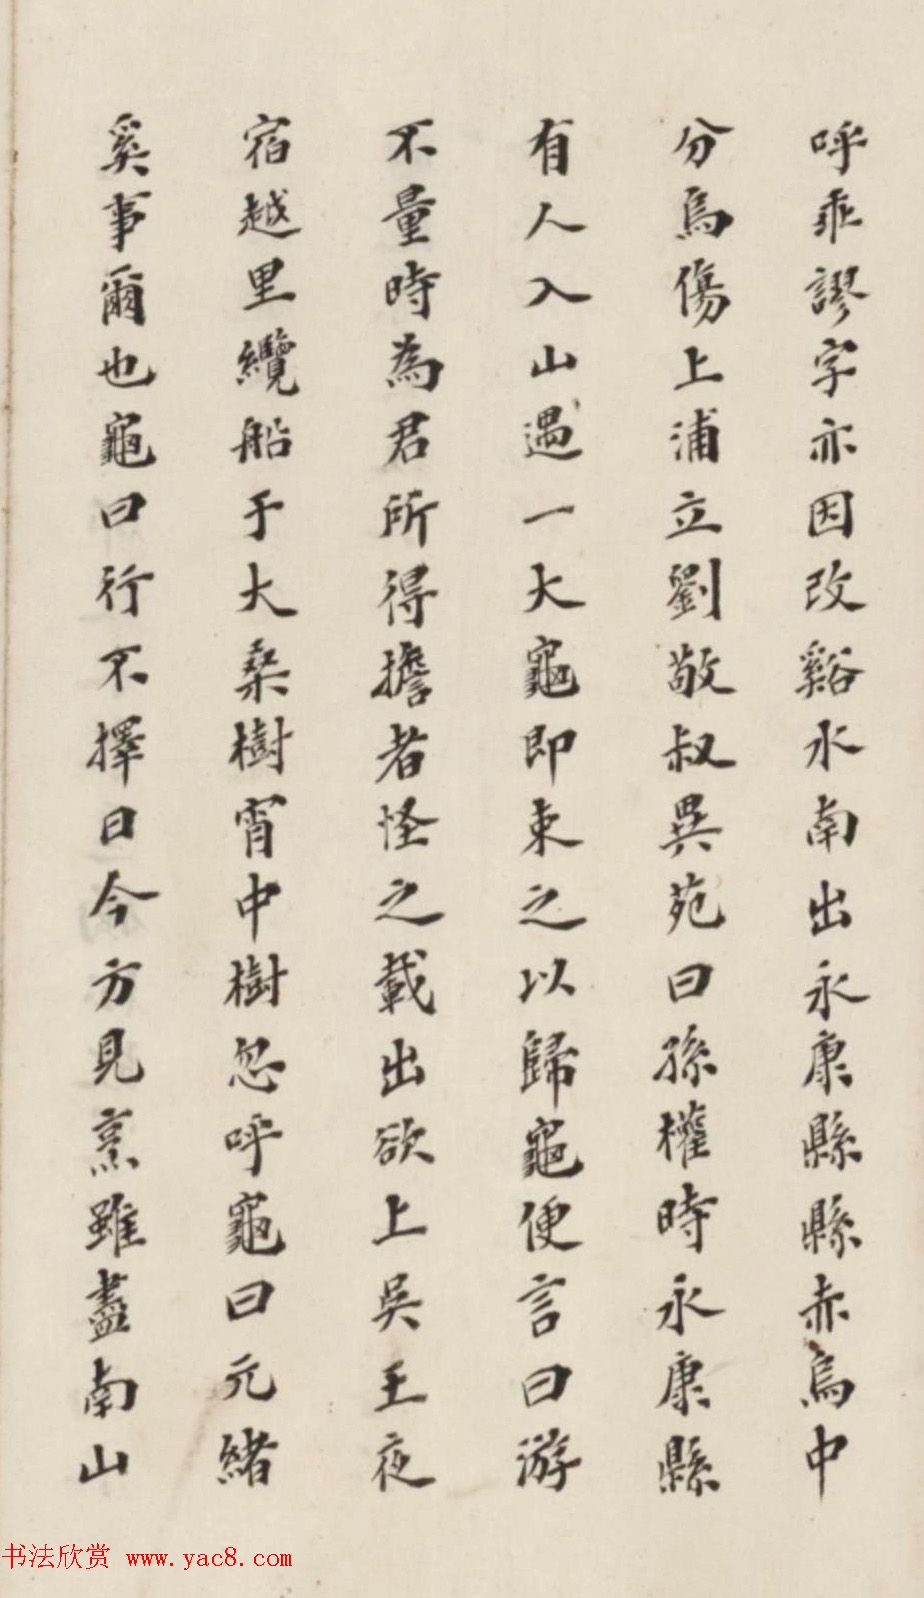 呼乖謬字亦因改谿水南出永康縣縣赤烏中
分烏傷上浦立劉敬叔異苑曰孫權時永康縣
有人入山遇一大龜即束之以歸龜便言曰游
不量時為君所得擔者怪之載出欲上吳王夜
宿越里纜船于大桒樹宵中樹忽呼龜曰元緒
奚事爾也龜曰行不擇日今方見烹雖盡南山
书法欣赏 www.yac8.com